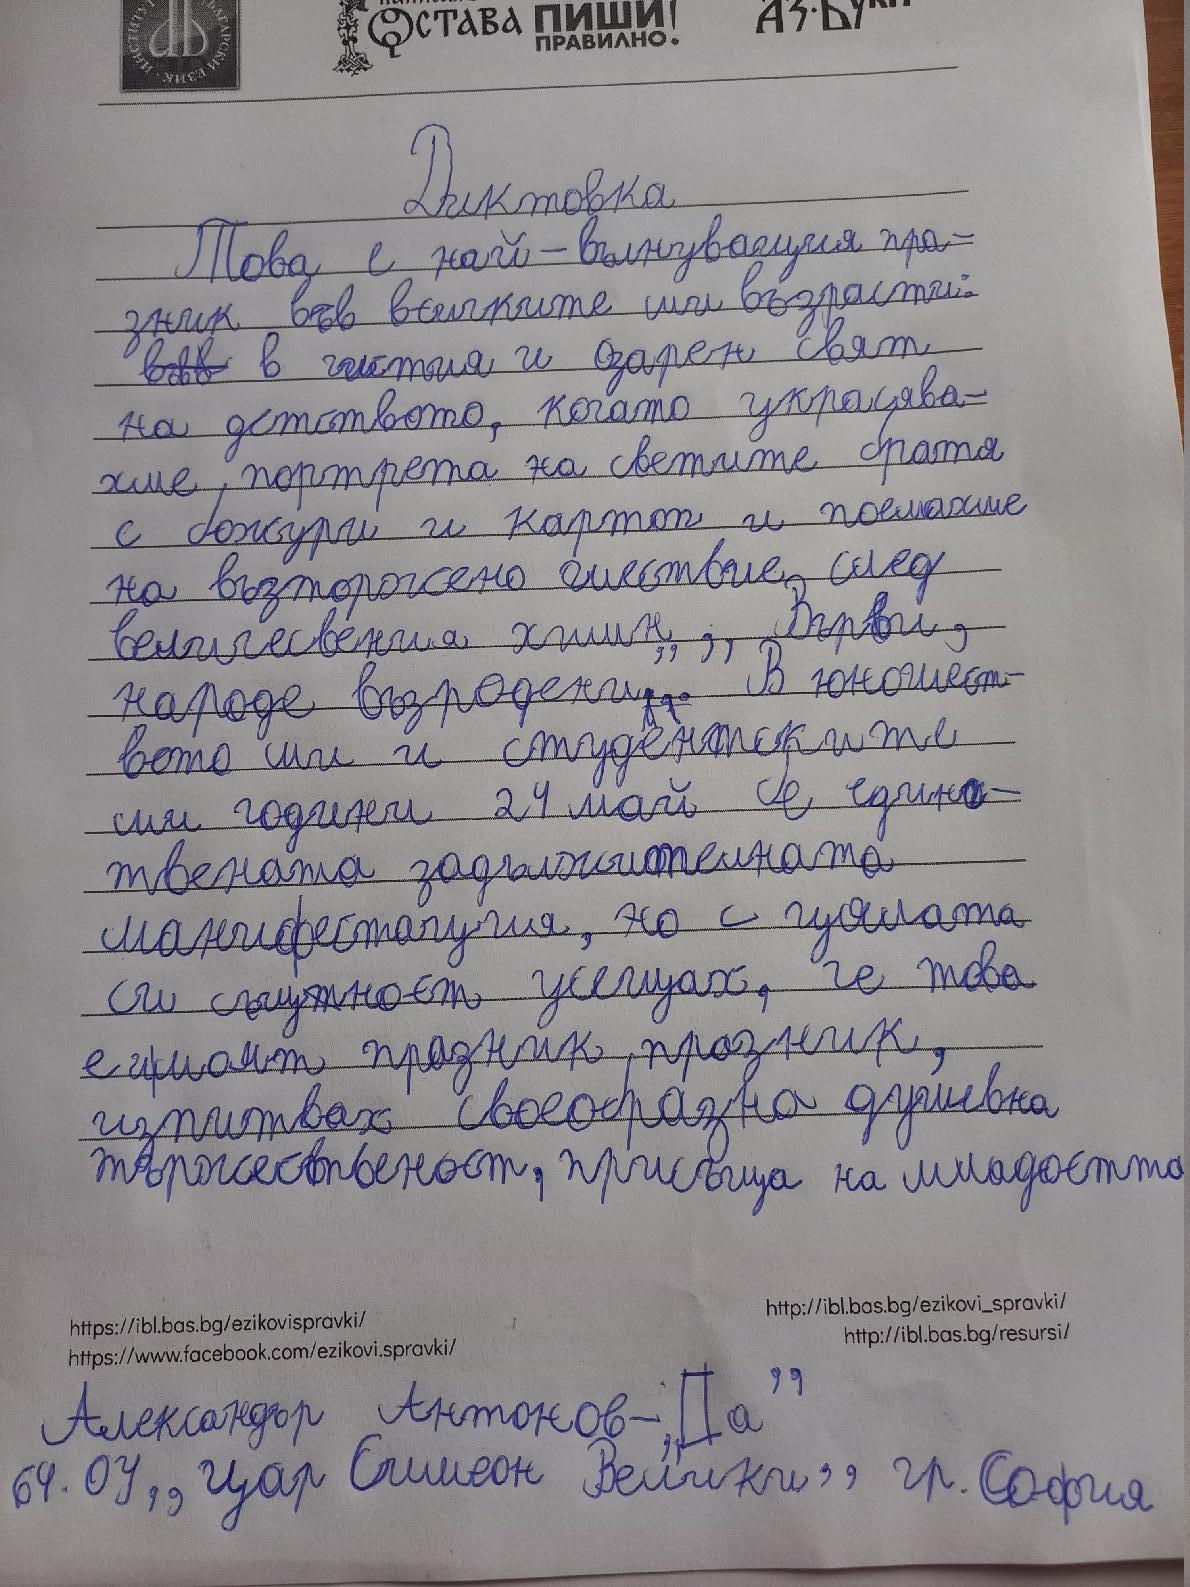 ОСТАВА ПИШИ! АЗ·БУКИ
ПРАВИЛНО.
Диктовка
Това е най-вълнуващия пра-
зник във всичките ми възрасти:
в чистия и озарен свят
на детството, когато украсява-
хме, портрета на светите братя
с божури и картоп и поемахме
на възторжено шествие, след
величесвения химн „ Върви,
народе възродени... В юношест-
вото ми и студентските
ми години 24 май бе едино-
твената задължителната
манифестация, но с цялата
си същтност усещах, че това
е имоят празник, празник,
изпитвах своеобразна душевна
тържественост, присъща на младостта
https://ibl.bas.bg/ezikovispravki/ http://ibl.bas.bg/ezikovi_spravki/
https://www.facebook.com/ezikovi.spravki/ http://ibl.bas.bg/resursi/
Александър Антонов-„Да”
64. ОУ „цар Симеон Велики” гр. София